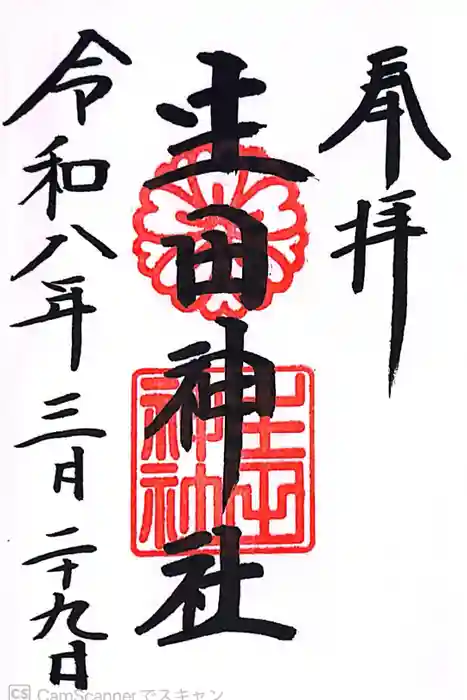 奉拝
生田神社
令和八年三月二十九日
CS CamScannerでスキャン